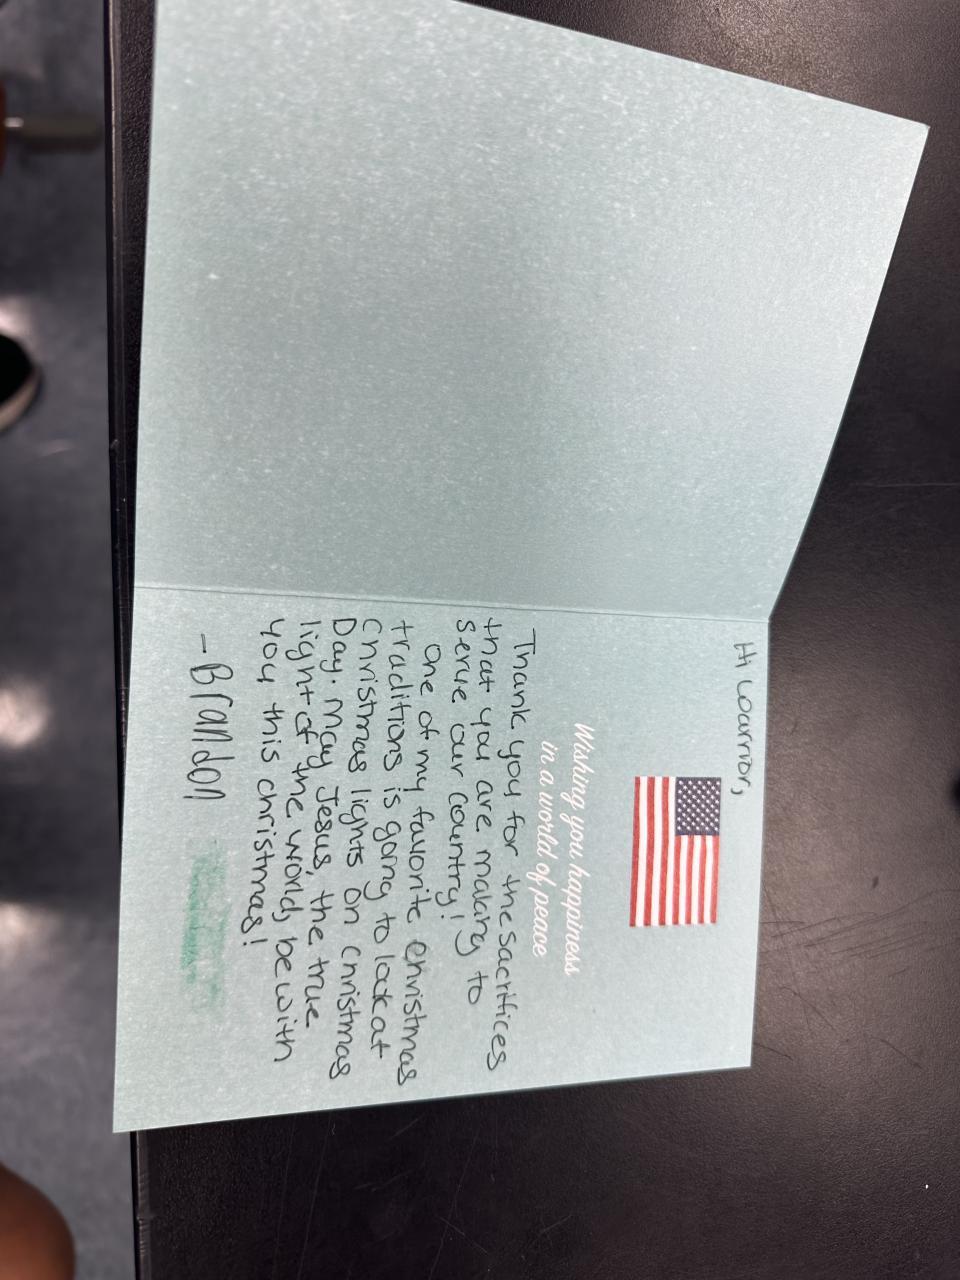 Hi Warrior,
Wishing you happiness
in a world of peace
Thank you for the sacrifices
that you are making to
serve our country!
One of my favorite christmas
traditions is going to look at
Christmas lights on Christmas
Day. May Jesus, the true
light of the world, be with
you this christmas!
- Brandon